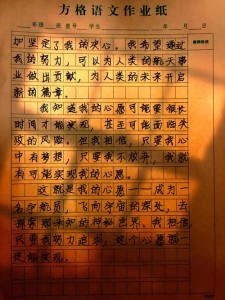 方格语文作业纸
年级 班 座号 学生 年 月 日
加坚定了我的决心。我希望通过
我的努力，可以为人类的航天事
业做出贡献，为人类的未来开启
新的篇章。
我知道我的心愿可能要很长
时间才能实现，甚至可能面临失
败的风险。但我相信，只要我心
中有梦想，只要我不放弃，我就
有可能实现我的心愿。
这就是我的心愿——成为一
名宇航员，飞向宇宙的深处，去
探索那未知的神秘世界。我相信，
只要我努力追求，这个心愿就一
定能实现。